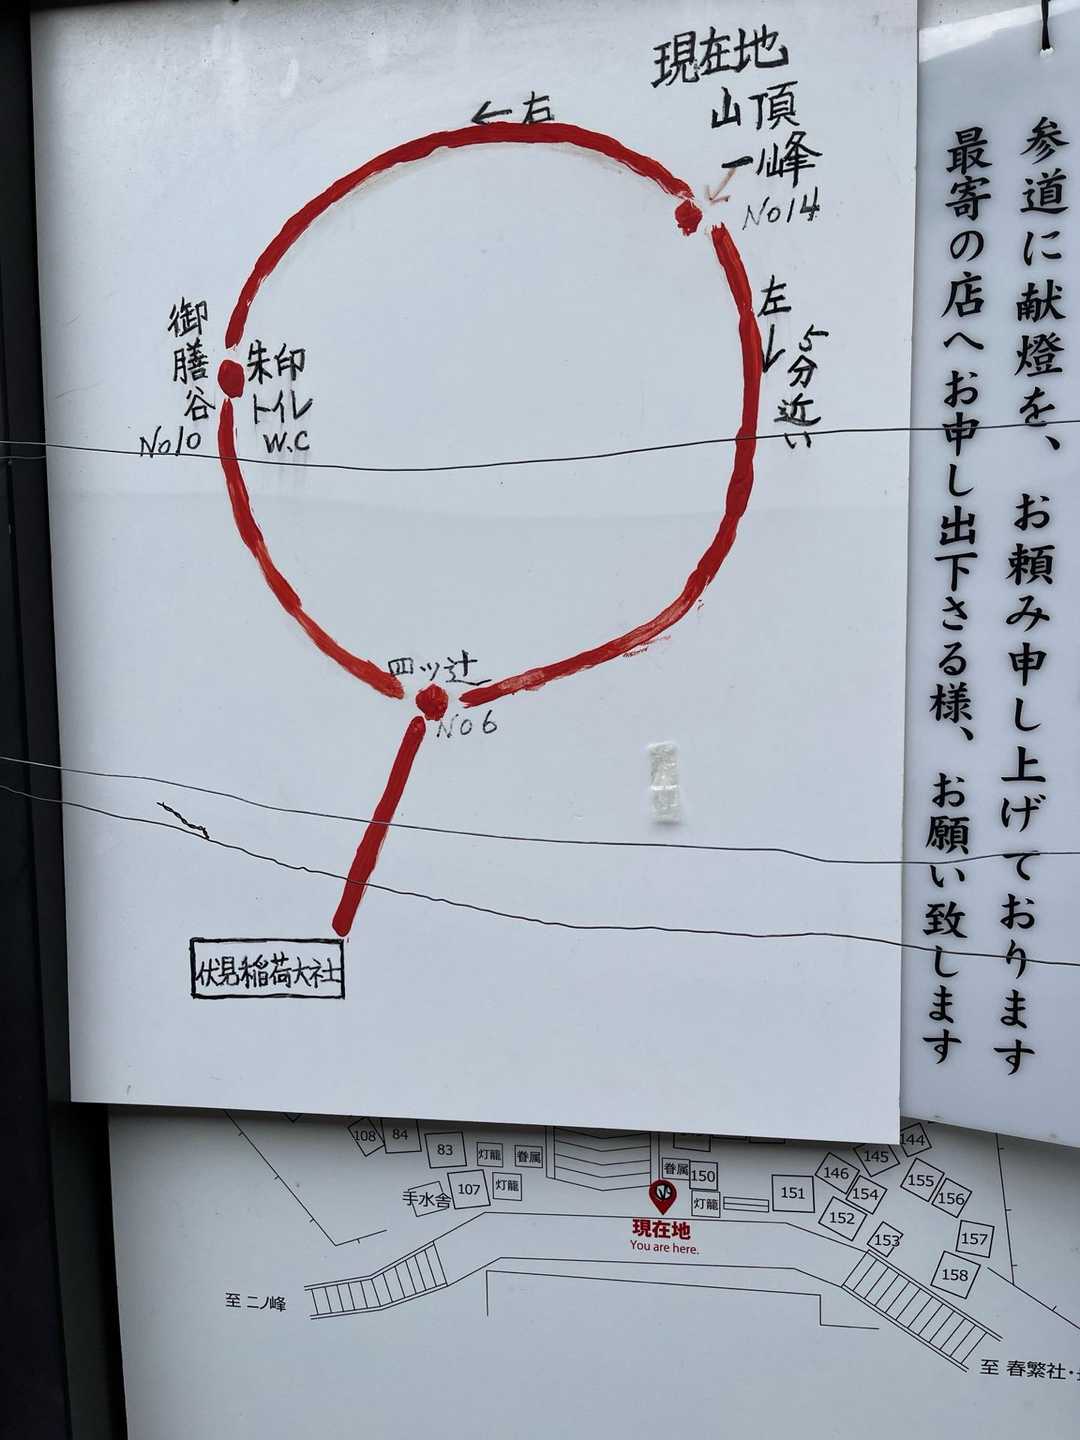 現在地
山頂
一ノ峰
No14
←右
左↓
5分近い
御膳谷
No10
朱印
トイレ
W.C
四ッ辻
No6
伏見稲荷大社
参道に献燈を、お頼み申し上げております
最寄の店へお申し出下さる様、お願い致します
108
84
83
灯籠
眷属
手水舎
107
灯籠
眷属
150
灯籠
現在地
You are here.
151
144
145
146
154
152
153
155
156
157
158
至 二ノ峰
至 春繁社・